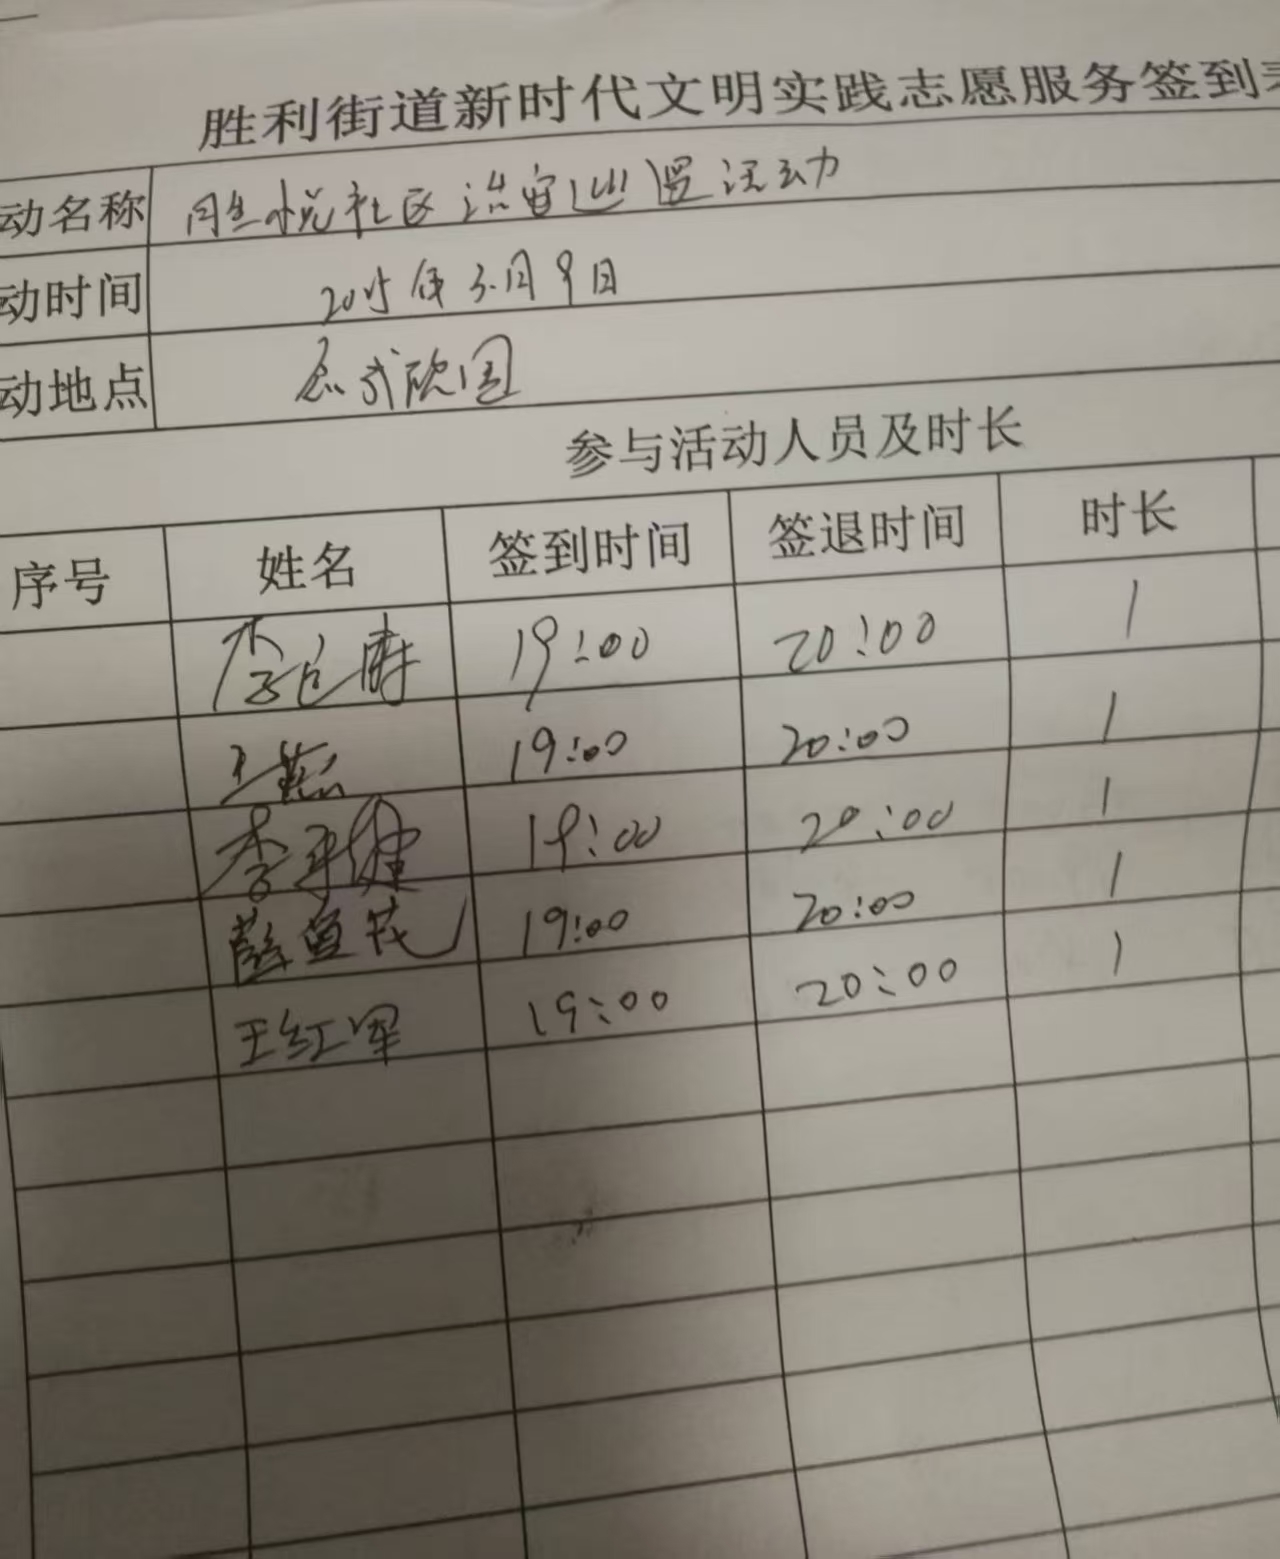 胜利街道新时代文明实践志愿服务签到
动名称 社区治安巡逻活动
动时间 2025年3.月9日
动地点
参与活动人员及时长
序号 姓名 签到时间 签退时间 时长
李 19:00 20:00 1
王 19:00 20:00 1
李 19:00 20:00 1
薛 茂 19:00 20:00 1
王红军 19:00 20:00 1